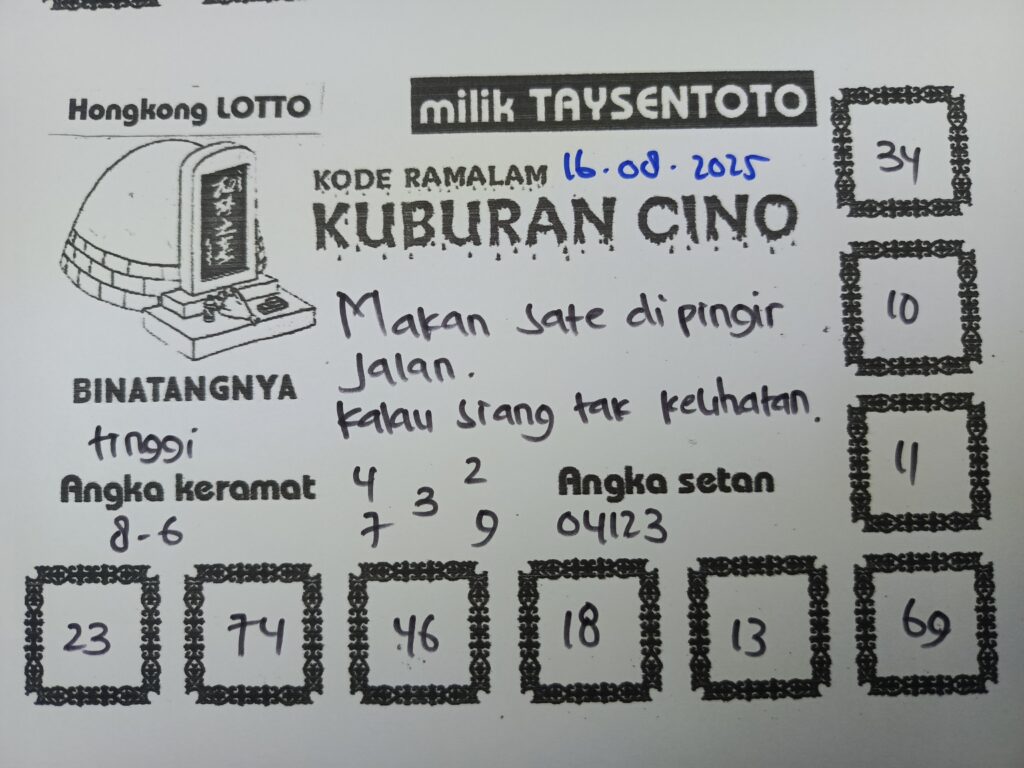 Hongkong LOTTO
milik TAYSENTOTO
KODE RAMALAM 16.08.2025
KUBURAN CINO
Makan sate di pingir
Jalan.
kalau siang tak kelihatan.
BINATANGNYA
tinggi
Angka keramat
8-6
4 2
3
7 9
Angka setan
04123
34
10
11
23 74 46 18 13 69